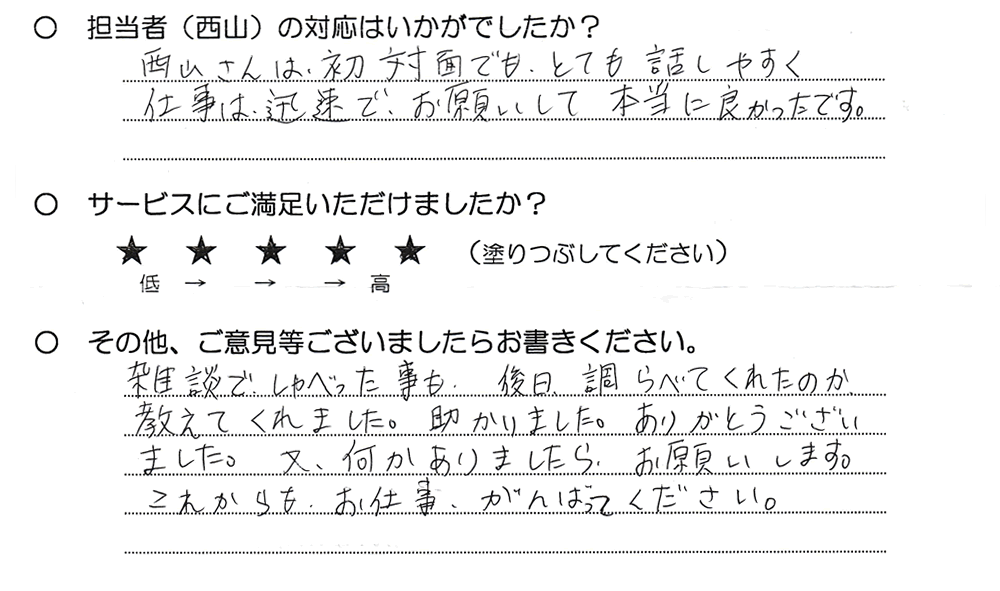 ○ 担当者（西山）の対応はいかがでしたか？
西山さんは、初対面でも、とても話しやすく
仕事は、迅速で、お願いして本当に良かったです。
○ サービスにご満足いただけましたか？
★ ★ ★ ★ ★ （塗りつぶしてください）
低 → → → 高
○ その他、ご意見等ございましたらお書きください。
雑談で、しゃべった事も、後日、調らべてくれたのか、
教えてくれました。助かりました。ありがとうござい
ました。又、何かありましたら、お願いします。
これからも、お仕事、がんばってください。